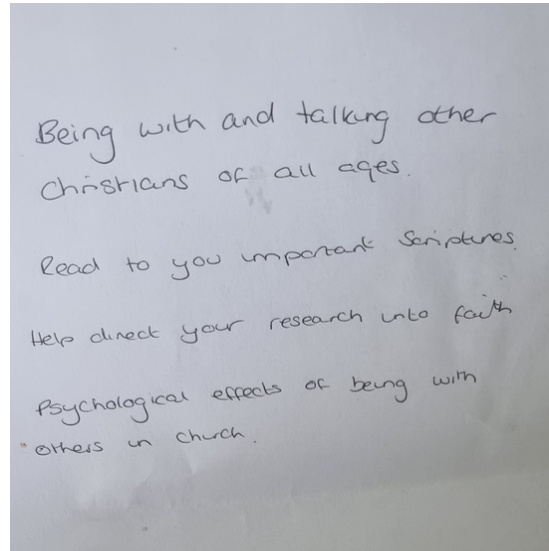 Being with and talking other
Christians of all ages.
Read to you important Scriptures.
Help direct your research into faith
Psychological effects of being with
others in church.